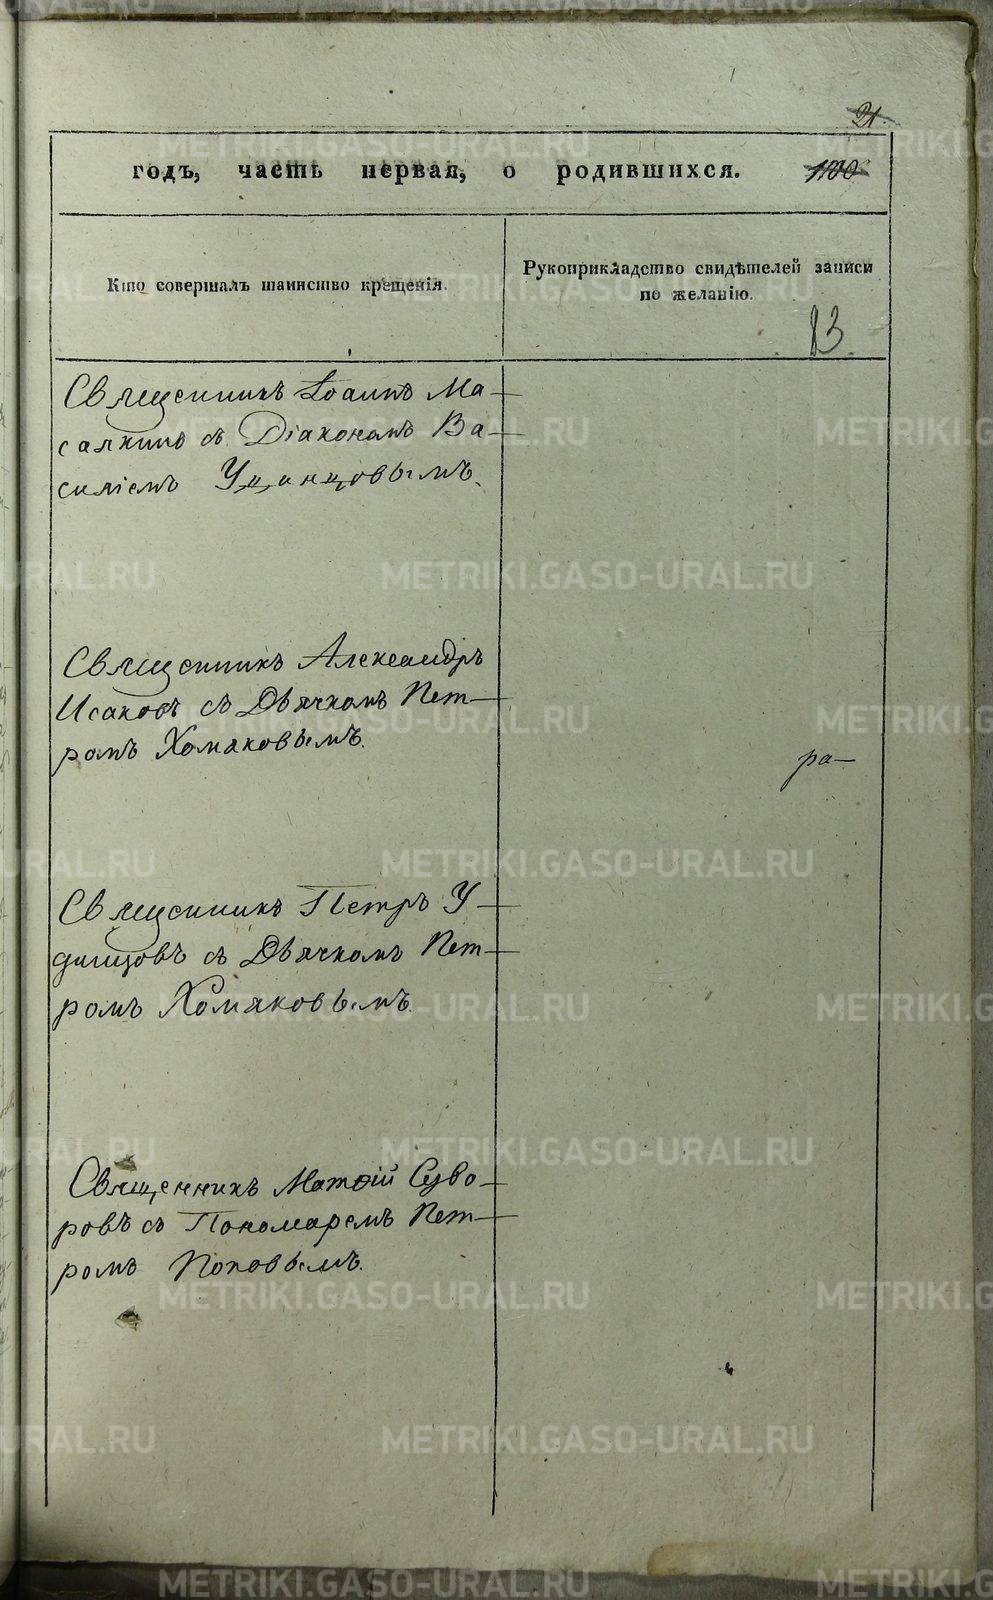 21.
годъ, часть первая, о родившихся. 1100
Кто совершалъ таинство крещенія.
Рукоприкладство свидѣтелей записи
по желанію.
13.
Священникъ Іоаннъ Ма-
салкинъ съ Діакономъ Ва-
силіемъ Удинцовымъ.
Священникъ Александръ
Исаковъ съ Дьячкомъ Пет-
ромъ Хомяковымъ.
ра-
Священникъ Петръ У-
динцовъ съ Дьячкомъ Пет-
ромъ Хомяковымъ.
Священникъ Матѳій Суво-
ровъ съ Пономаремъ Пет-
ромъ Поповымъ.
METRIKI.GASO-URAL.RU